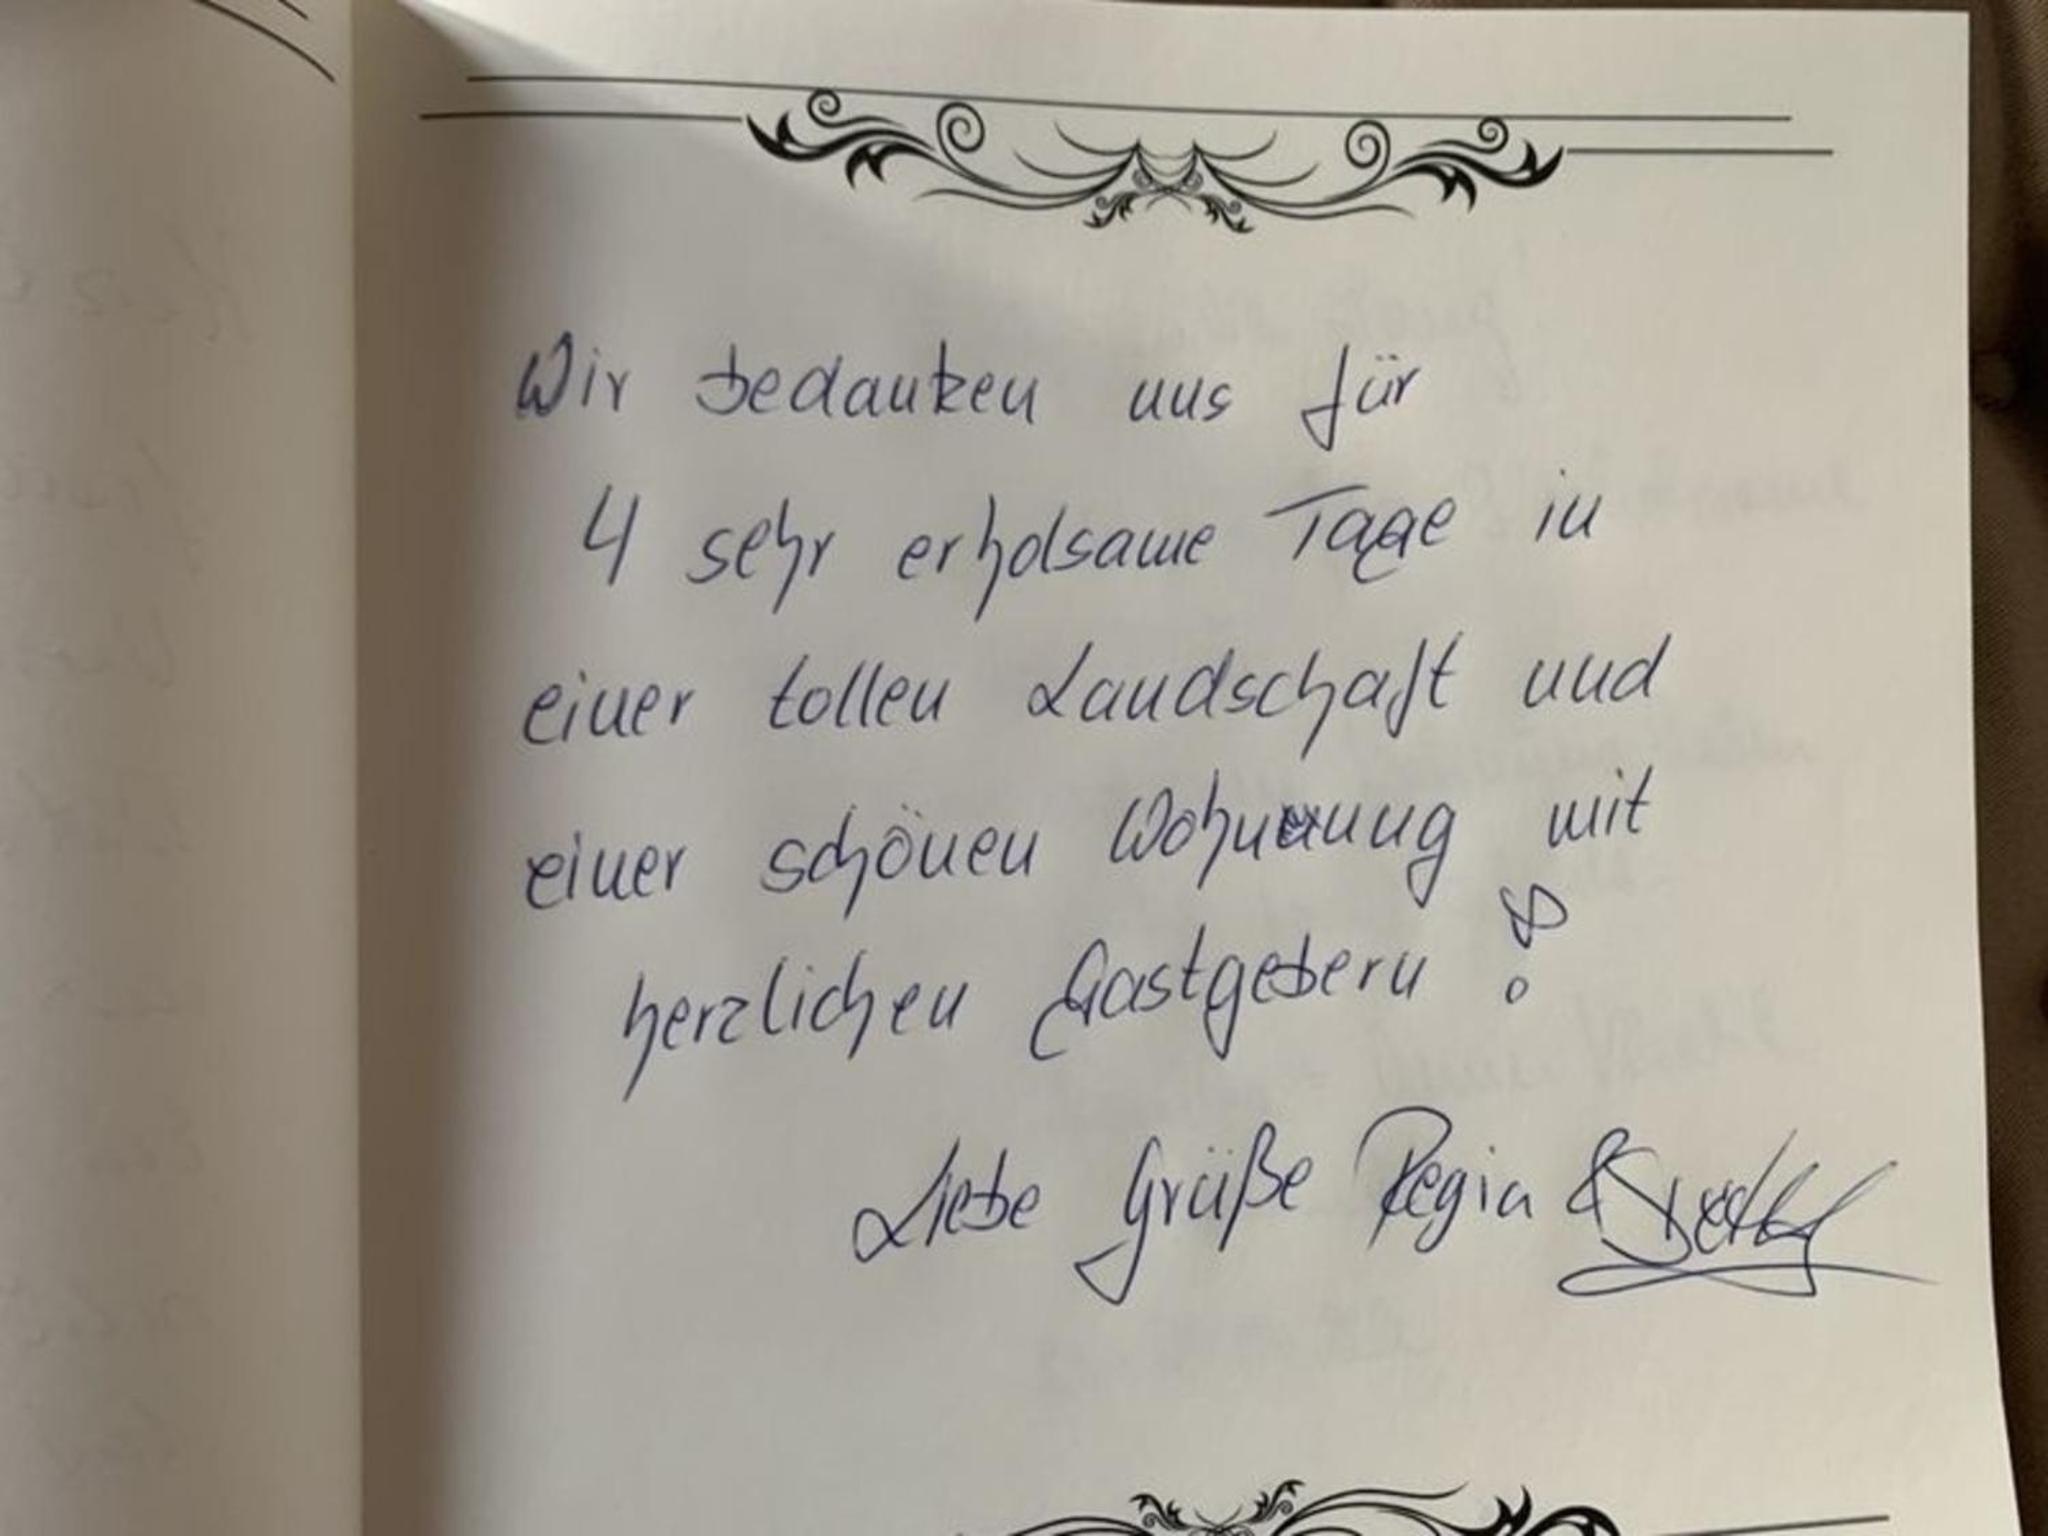 Wir bedanken uns für
4 sehr erholsame Tage in
einer tollen Landschaft und
einer schönen Wohnung mit
herzlichen Gastgebern!
Liebe Grüße Regin &